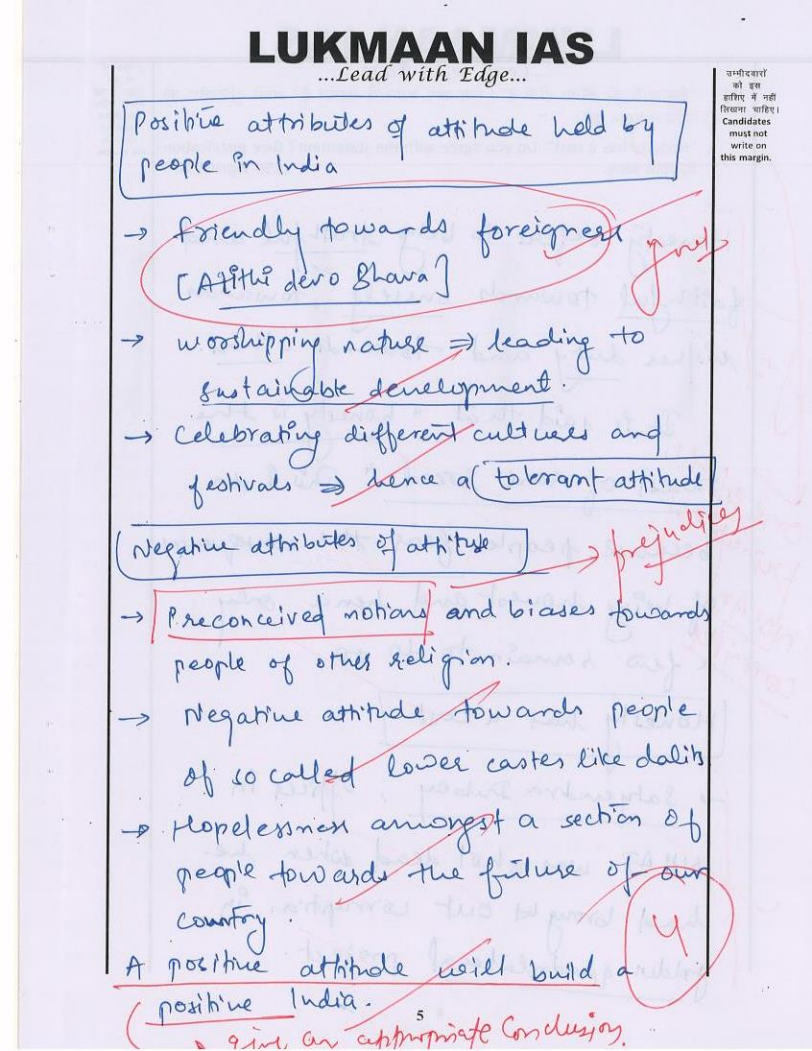 LUKMAAN IAS
...Lead with Edge...
उम्मीदवारों
को इस
हाशिए में नहीं
लिखना चाहिए।
Candidates
must not
write on
this margin.
Positive attributes of attitude held by
people in India
→ friendly towards foreigners
[Atithi devo Bhava]
→ worshipping nature ⇒ leading to
sustainable development.
→ Celebrating different cultures and
festivals ⇒ hence a tolerant attitude
Negative attributes of attitude
→ prejudices
→ Preconceived notions and biases towards
people of other religion.
→ Negative attitude towards people
of so called lower castes like dalits
→ Hopelessness amongst a section of
people towards the future of our
country.
4
A positive attitude will build a
positive India.
5
give an appropriate Conclusion.